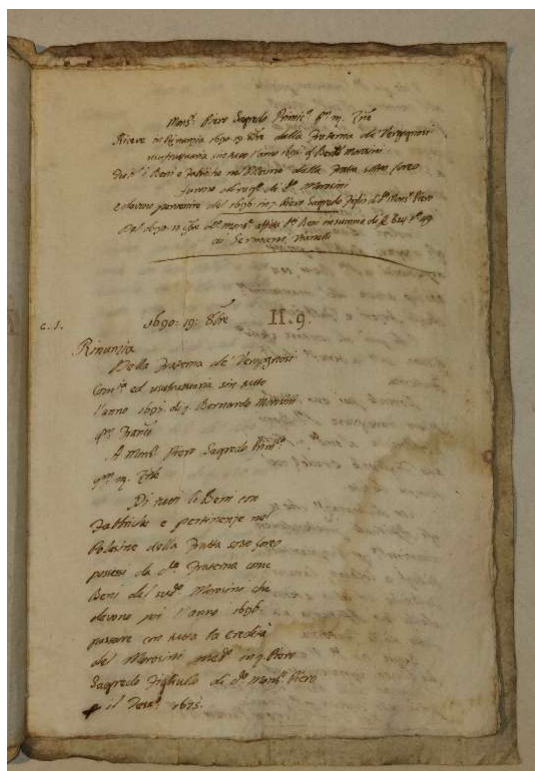 Mons.r Piero Sagredo Primic.o q.m m. Zuē
Riceve in Rinunzia 1690. 19 8bre della Fraterna de Vergognosi
usufruttuaria sin tutto l'anno 1695 q. Bern.do Morosini
Tutti i Beni e Fabriche nel Polesine della Fratta sotto Loreo
furono di rag.e di d.o Morosini
e devono pervenire del 1696 in q. Piero Sagredo Figlio di d.o Mons.r Piero
Dal 1690 11 d.o Mons.r affitta d.i Beni in summa di
a Germano
c. 1. 1690: 19: 8bre II. 9.
Rinunzia
Della Fraterna de' Vergognosi
Com.ria ed usufruttuaria sin tutto
l'anno 1695 di q. Bernardo Morosini
q.m Franc.o
A Mons.r Piero Sagredo Prim.o
q.m m. Zuē
Di tutti li Beni con
Fabbriche e pertinenze nel
Polesine della Fratta sotto Loreo
possessi da d.a Fraterna come
Beni del sud.o Morosini che
devono poi l'anno 1696
passare con tutta la Eredità
del Morosini med.o in q. Piero
Sagredo Figliulo di d.o Mons.r Piero
il Test.o 1675.